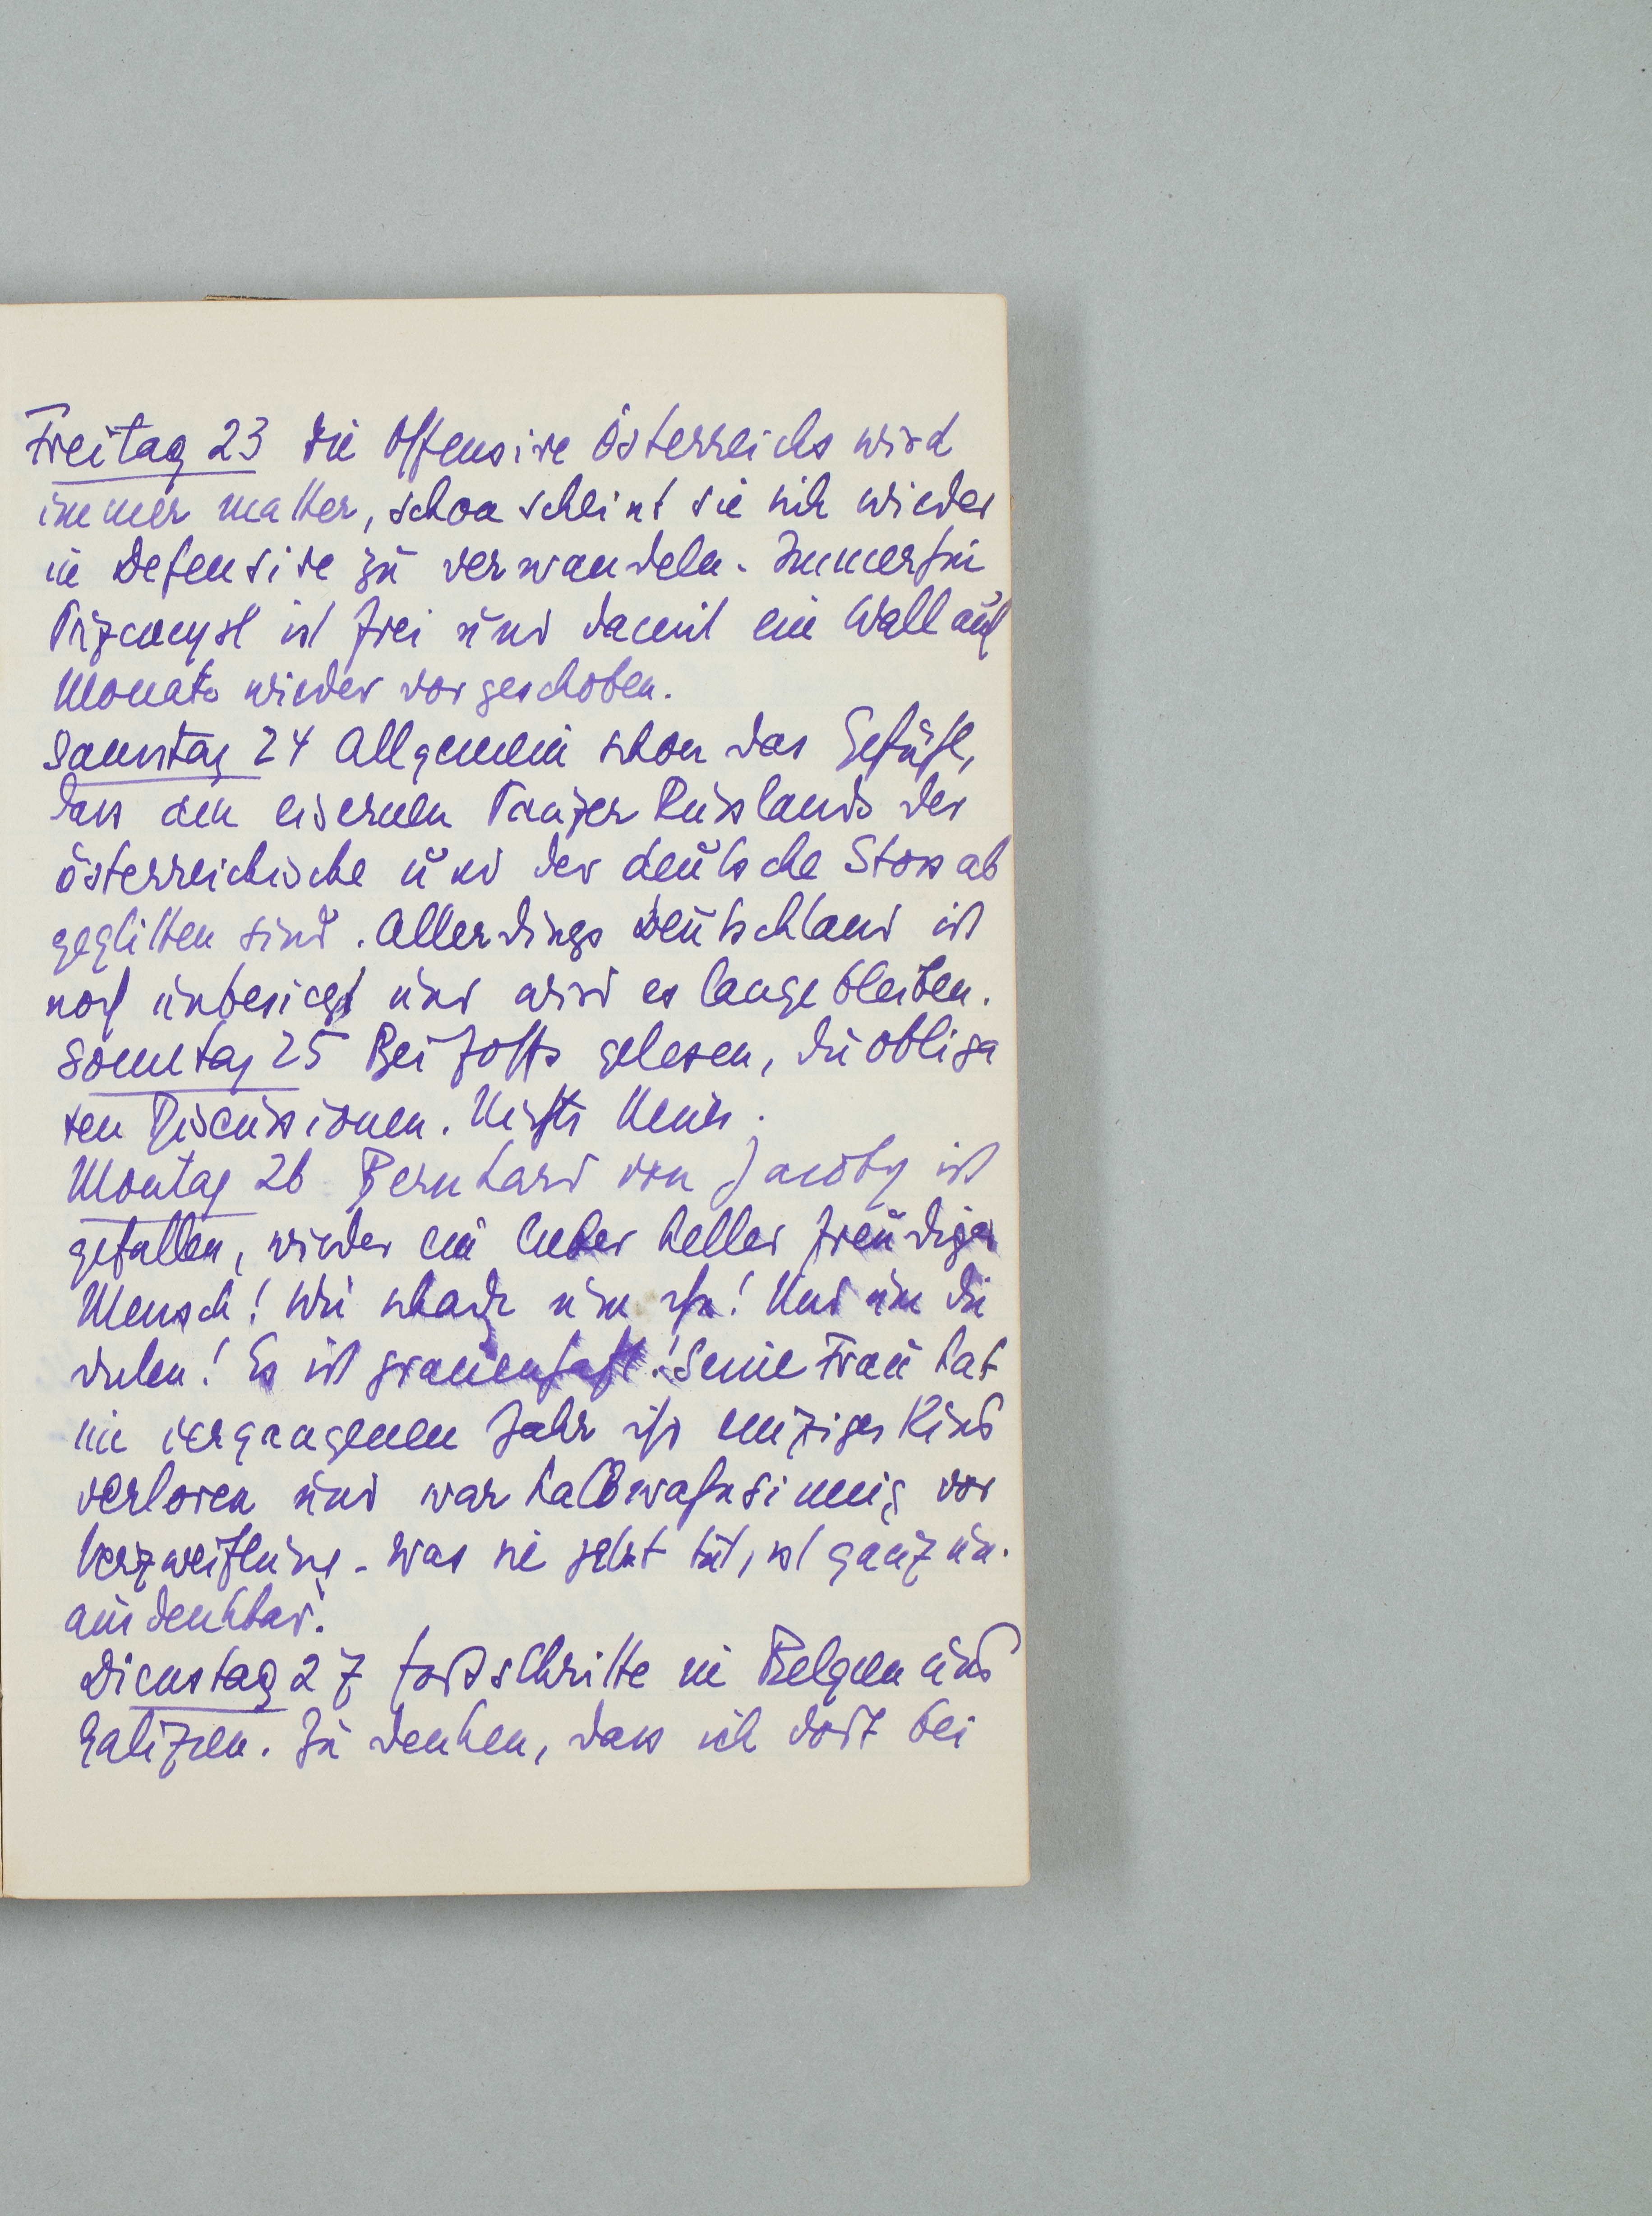 Freitag 23 Die Offensive Österreichs wird
immer matter, schon scheint sie sich wieder
in Defensive zu verwandeln. Immerhin
Przemysl ist frei und damit ein Wall auf
Monate wieder vorgeschoben.
Samstag 24 Allgemein schon das Gefühl,
dass am eisernen Panzer Russlands der
österreichische und der deutsche Stoss ab
geglitten sind. Allerdings Deutschland ist
noch unbesiegt und wird es lange bleiben.
Sonntag 25 Bei gelesen, die obliga
ten Discussionen. Nichts Neues.
Montag 26 Bernhard von Jacoby ist
gefallen, wieder ein lieber heller freudiger
Mensch! Wie schade um ihn! Und um die
vielen! Es ist grauenhaft! Seine Frau hat
im vergangenen Jahr ihr einziges Kind
verloren und war halbwahnsinnig vor
Verzweiflung - was sie jetzt tut, ist ganz un-
ausdenkbar!
Dienstag 27 Fortschritte in Belgien und
Galizien. Zu denken, dass ich dort bei